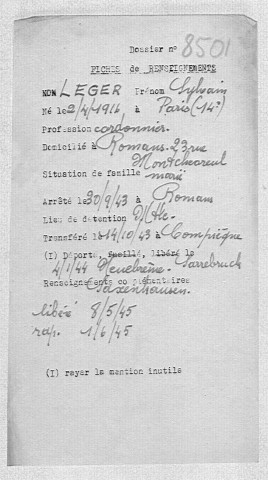 Dossier n° 8501
FICHE de RENSEIGNEMENTS
NOM LEGER Prénom Sylvain
Né le 2/4/1916 à Paris (14e)
Profession cordonnier.
Domicilié à Romans. 23 rue
Montchorel
Situation de famille marié
Arrêté le 30/9/43 à Romans
Lieu de detention
Transféré le 14/10/43 à Compiègne
(I) Déporté, fusillé, libéré le
4/1/44 Neuebreme. Sarrebruck
Renseignements complémentaires
Saxenhausen.
libéé 8/5/45
rap. 1/6/45
(I) rayer la mention inutile